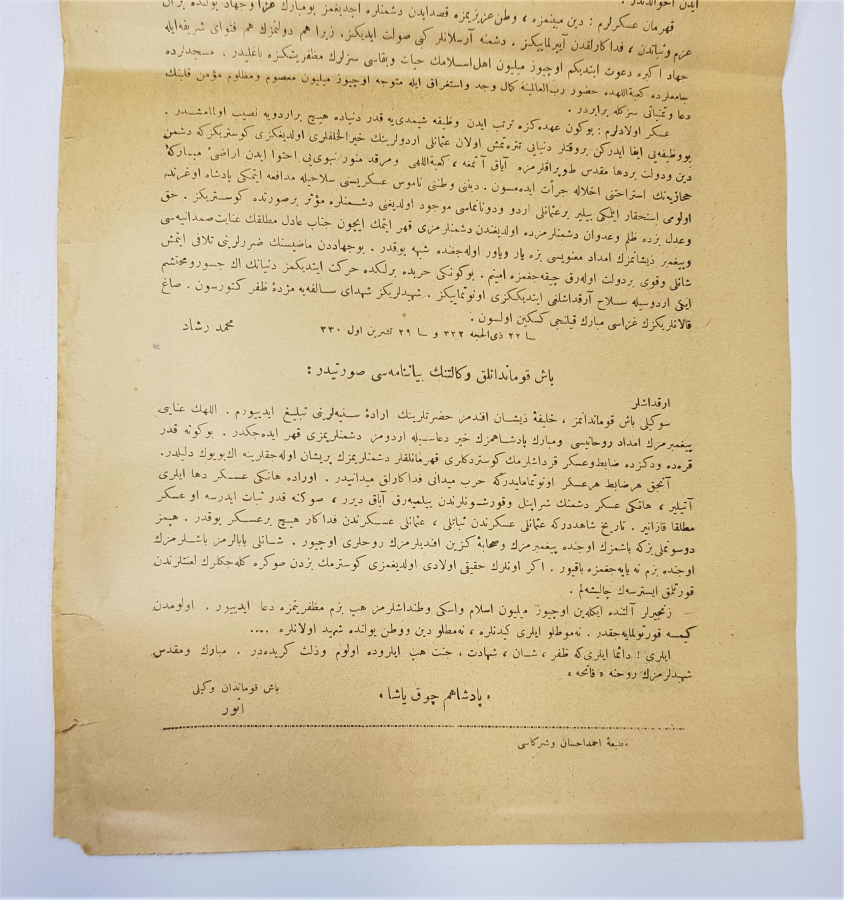 ایدن احوالدندر .
قهرمان عسکرلرم : دین مبینمزه ، وطن عزیزیمزه قصد ایدن دشمنلره آچدیغمز بو مبارك غزا و جهاد یولنده بر آن
عزم و ثباتدن ، فداکارلقدن آیریلمایکز . دشمنه آرسلانلر کبی صولت ایدیکز. زیرا هم دولتمزك هم فتوای شریفه ایله
جهاد اکبره دعوت ایتدیکم اوچیوز میلیون اهل اسلامك حیات و بقاسی سزلرك مظفریتکزه باغلیدر . مسجدلرده
جامعلرده کعبة اللهده حضور رب العالمینه کمال وجد و استغراق ایله متوجه اوچیوز میلیون معصوم و مظلوم مؤمن قلبنك
دعا و تمنیاتی سزکله برابردر .
عسکر اولادلرم : بوکون عهده کزه ترتب ایدن وظیفه شیمدی یه قدر دنیاده هیچ بر اردویه نصیب اولمامشدر .
بو وظیفه یی ایفا ایدرکن بر وقتلر دنیایی تتره تمش اولان عثمانلی اردولرینك خیر الخلفلری اولدیغکزی کوستریکز که دشمن
دین و دولت بر دها مقدس طوپراقلرمزه آیاق آتمغه ، کعبة اللهی و مرقد منور نبوی یی احتوا ایدن اراضیٔ مبارکهٔ
حجازیه نك استراحتنی اخلاله جرأت ایده مسون . دیننی وطننی ناموس عسکریسنی سلاحیله مدافعه ایتمکی پادشاه اوغرنده
اولومی استحقار ایتمکی بیلیر بر عثمانلی اردو و دونانماسی موجود اولدیغنی دشمنلره مؤثر بر صورتده کوستریکز . حق
و عدل بزده ظلم و عدوان دشمنلرمزده اولدیغندن دشمنلرمزی قهر ایتمك ایچون جناب عادل مطلقك عنایت صمدانیه سی
و پیغمبر ذیشانمزك امداد معنویسی بزه یار و یاور اوله جغنده شبهه یوقدر . بو جهاددن ماضیسنك ضررلرینی تلافی ایتمش
شانلی و قوی بر دولت اوله رق چیقه جغمزه امینم . بوکونکی حربده برلکده حرکت ایتدیکمز دنیانك اك جسور و محتشم
ایکی اردوسیله سلاح آرقداشلغی ایتدیککزی اونوتمایکز . شهیدلریکز شهدای سالفه یه مژدهٔ ظفر کتورسون . صاغ
قالانلریکزك غزاسی مبارك قیلنجی کسکین اولسون .
سا ٢٢ ذی الحجه ٣٣٢ و سا ٢٩ تشرین اول ٣٣٠
محمد رشاد
باش قوماندانلق وکالتنك بیاننامه سی صورتیدر :
ارقداشلر
سوکیلی باش قوماندانمز ، خلیفهٔ ذیشان افندمز حضرتلرینك ارادهٔ سنیه لرینی تبلیغ ایدییورم . اللهك عنایتی
پیغمبرمزك امداد روحانیسی و مبارك پادشاهمزك خیر دعاسیله اردومز دشمنلریمزی قهر ایده جکدر . بوکونه قدر
قره ده و دکزده ضابط و عسکر قرداشلرمك کوستردکلری قهرمانلقلر دشمنلریمزك پریشان اوله جقلرینه اك بویوك دلیلدر.
آنجق هر ضابط هر عسکر اونوتمامالیدر که حرب میدانی فداکارلق میدانیدر . اوراده هانکی عسکر دها ایلری
آتیلیر ، هانکی عسکر دشمنك شراپنل و قورشونلرندن ییلمیه رق آیاق دیرر ، صوکنه قدر ثبات ایدرسه او عسکر
مطلقا قازانیر . تاریخ شاهددر که عثمانلی عسکرندن ثباتلی ، عثمانلی عسکرندن فداکار هیچ بر عسکر یوقدر . هپمز
دوشونملی یز که باشمزك اوجنده پیغمبرمزك و صحابهٔ کزین افندیلرمزك روحلری اوچیور . شانلی بابالرمز باشلرمزك
اوجنده بزم نه یاپه جغمزه باقیور . اکر اونلرك حقیقی اولادی اولدیغمزی کوسترمك بزدن صوکره کله جکلرك لعنتلرندن
قورتلق ایسترسه ك چالیشه لم .
زنجیرلر آلتنده ایکله ین اوچیوز میلیون اسلام و اسکی وطنداشلرمز هب بزم مظفریتمزه دعا ایدییور . اولومدن
کیمسه قورتولمایه جقدر . نه موطلو ایلری کیدنلره ، نه مطلو دین و وطن یولنده شهید اولانلره ....
ایلری ! دائما ایلری که ظفر ، شان ، شهادت ، جنت هب ایلروده اولوم و ذلت کریده در . مبارك و مقدس
شهیدلرمزك روحنه فاتحه ،
« پادشاهم چوق یاشا »
باش قوماندان وکیلی
انور
مطبعهٔ احمد احسان و شرکاسی